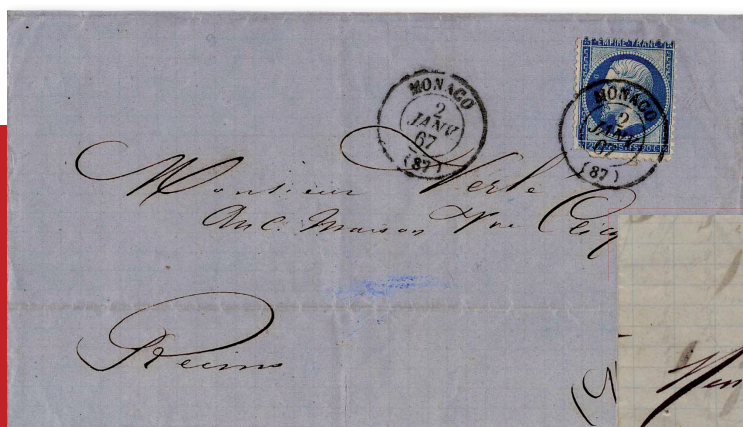 EMPIRE FRANC
MONACO
2
JANV
67
(87)
MONACO
2
JANV
67
(87)
Monsieur Werle
Anc. Maison Vve Clicq
Reims